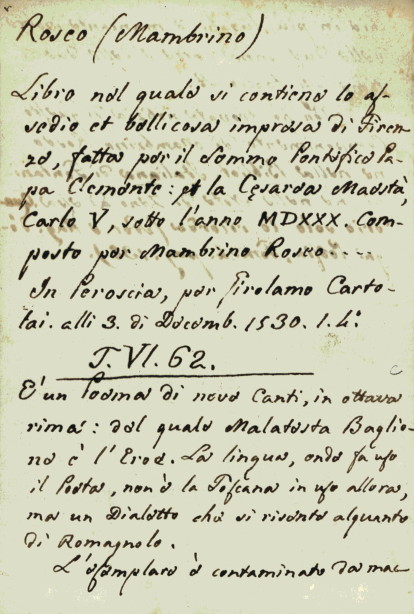 Roseo (Mambrino)
Libro nel quale si contiene lo aſ-
sedio et bellicosa impresa di Firen-
ze, fatta per il Sommo Pontefice Pa-
pa Clemente: et la Cęsarea Maestà,
Carlo V, sotto l'anno MDXXX. Com-
posto per Mambrino Roseo....
In Peroscia, per Girolamo Carto-
lai. alli 3. di Decemb. 1530. 4.º
T. VI. 62.
E' un Poema di nove Canti, in ottava
rima: del quale Malatesta Baglio-
ne è l'Eroe. La lingua, onde fa uſo
il Poeta, non è la Toſcana in uſo allora,
ma un Dialetto che si risente alquanto
di Romagnolo.
L'eſemplare è contaminato da mac-